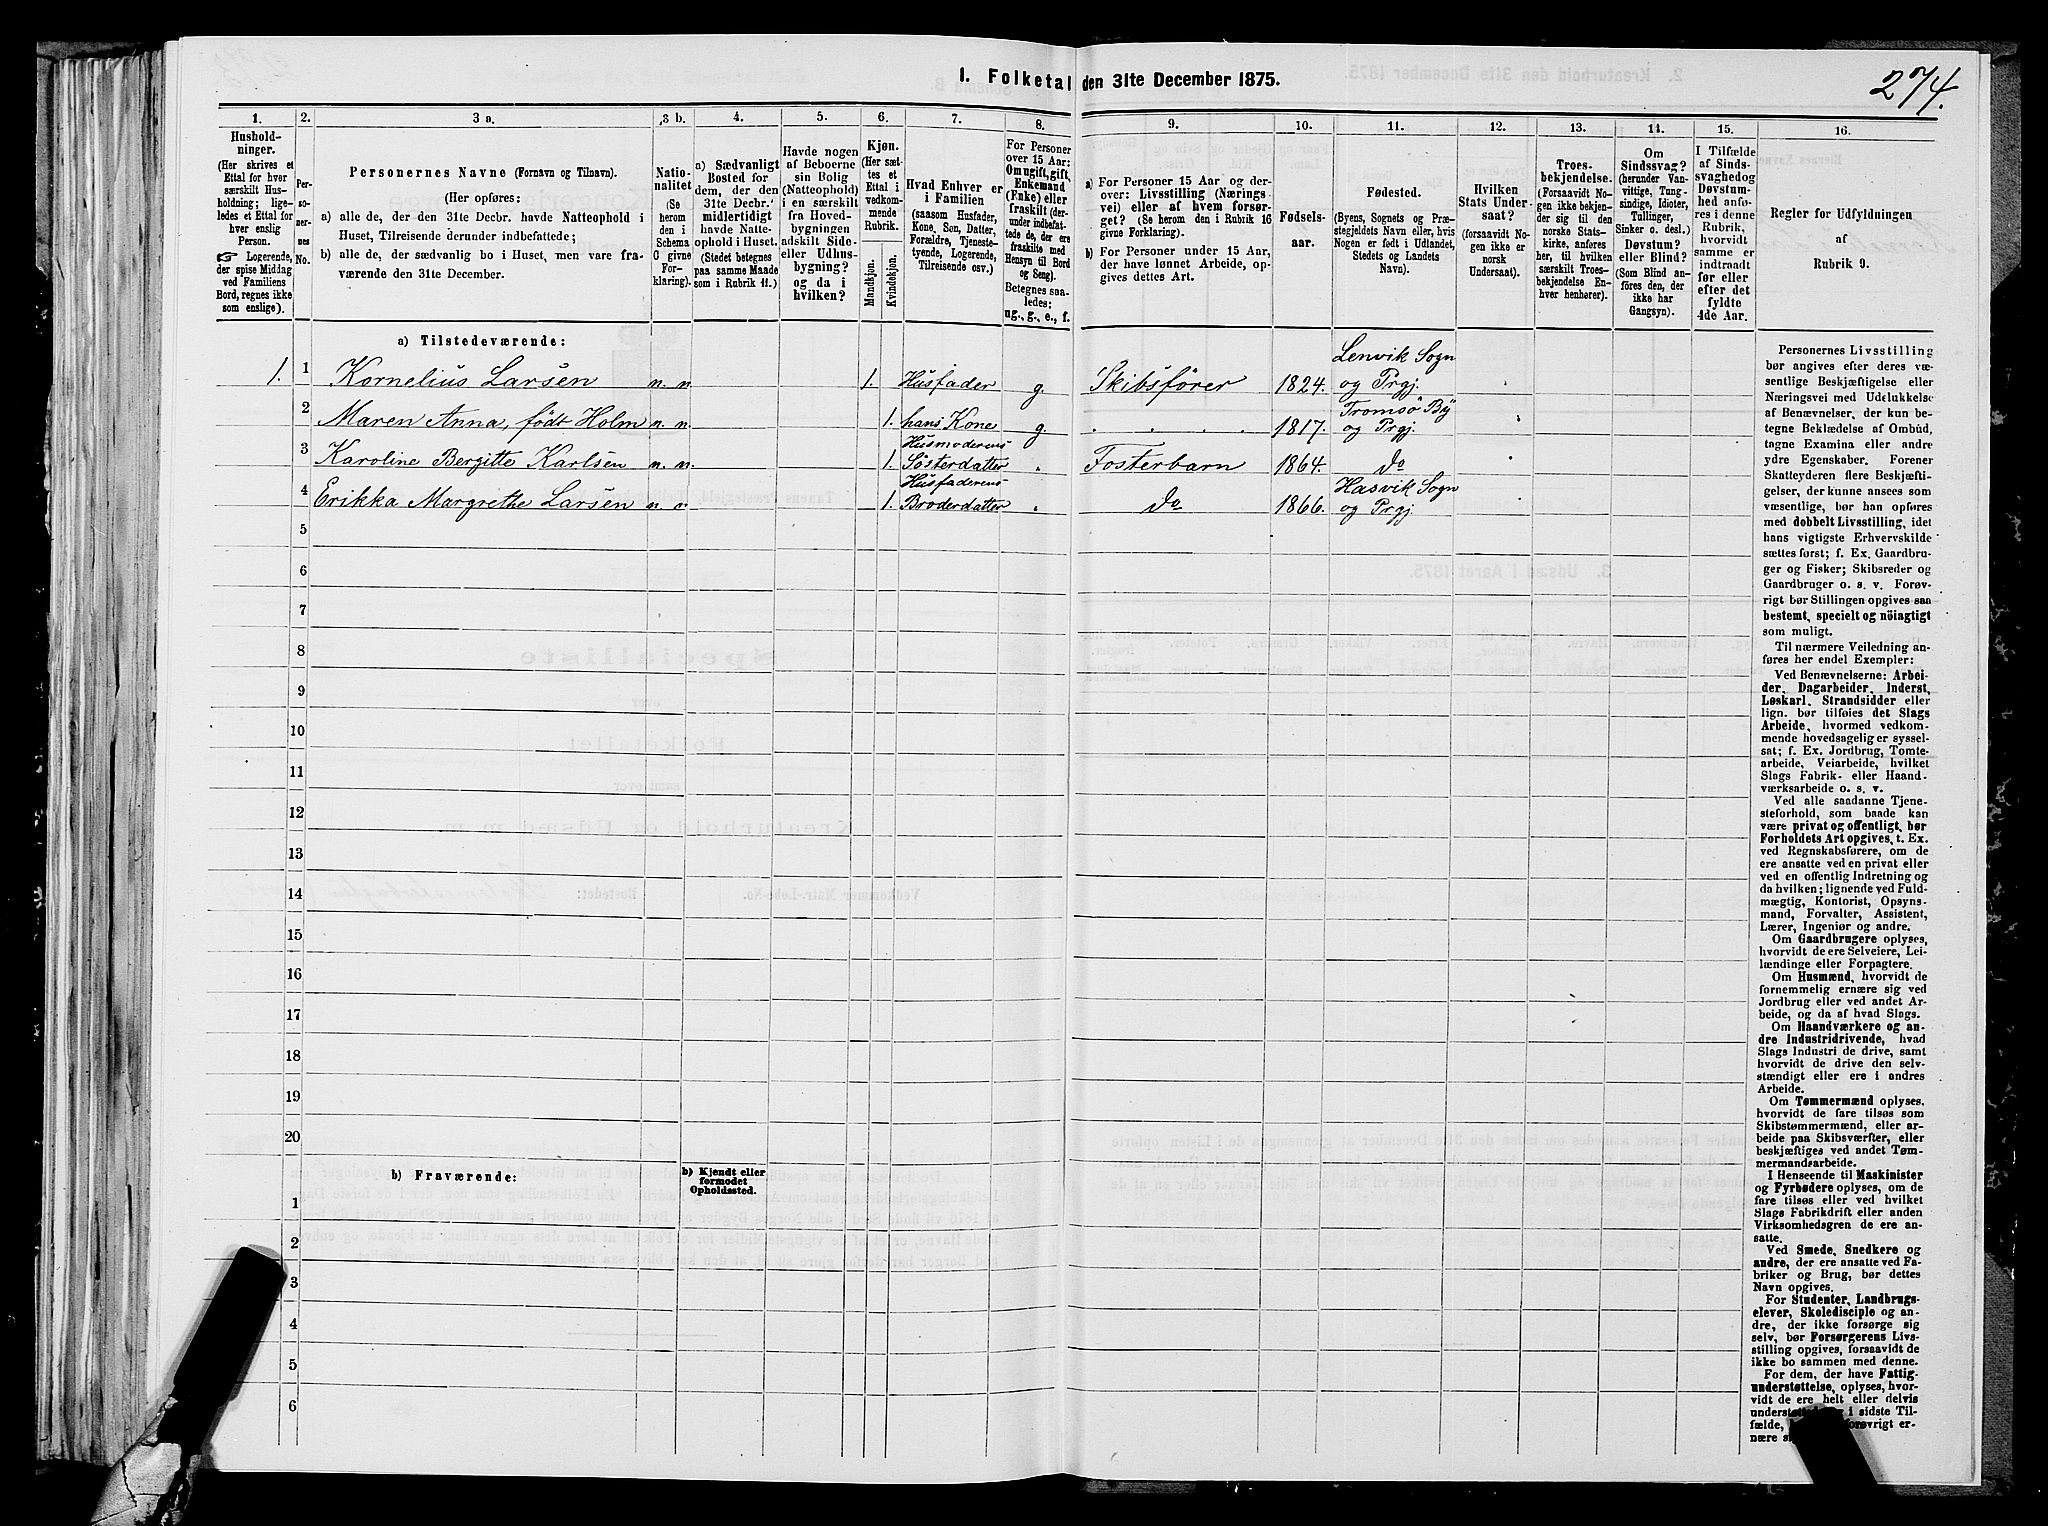 274.
1. Folketal den 31te December 1875.
1. 2. 3 a. 3 b. 4. 5. 6. 7. 8. 9. 10. 11. 12. 13. 14. 15. 16.
Hushold-
ninger.
(Her skrives et
Ettal for hver
særskilt Hus-
holdning; lige-
ledes et Ettal for
hver enslig
Person.
☞ Logerende,
der spise Middag
ved Familiens
Bord, regnes ikke
som enslige).
Per-
so-
ner-
nes
No.
Personernes Navne (Fornavn og Tilnavn).
(Her opføres:
a) alle de, der den 31te Decbr. havde Natteophold i
Huset, Tilreisende derunder indbefattede;
b) alle de, der sædvanlig bo i Huset, men vare fra-
værende den 31te December.
Natio-
nalitet
(Se
herom
den i
Schema
C givne
For-
klaring).
a) Sædvanligt
Bosted for
dem, der den
31te Decbr.
midlertidigt
havde Natte-
ophold i Huset.
(Stedet betegnes
paa samme Maade
som i Rubrik 11.)
Havde nogen
af Beboerne
sin Bolig
(Natteophold)
i en særskilt
fra Hoved-
bygningen
adskilt Side-
eller Udhus-
bygning?
og da i
hvilken?
Kjøn.
(Her sæt-
tes et
Ettal i
vedkom-
mende
Rubrik.
Mandkjøn.
Kvindekjøn.
Hvad Enhver er
i Familien
(saasom Husfader,
Kone, Søn, Datter,
Forældre, Tjeneste-
tyende, Logerende,
Tilreisende osv.)
For Personer
over 15 Aar:
Om ugift, gift,
Enkemand
(Enke) eller
fraskilt (der-
under indbefat-
tede de, der ere
fraskilte med
Hensyn til Bord
og Seng).
Betegnes saa-
ledes:
ug., g., e., f.
a) For Personer 15 Aar og der-
over: Livsstilling (Nærings-
vei) eller af hvem forsør-
get? (Se herom den i Rubrik 16
givne Forklaring).
b) For Personer under 15 Aar,
der have lønnet Arbeide, op-
gives dettes Art.
Fødsels-
aar.
Fødested.
(Byens, Sognets og Præ-
stegjeldets Navn eller, hvis
Nogen er født i Udlandet,
Stedets og Landets
Navn).
Hvilken
Stats Under-
saat?
(forsaavidt No-
gen ikke er
norsk
Undersaat).
Troes-
bekjendelse.
(Forsaavidt No-
gen ikke bekjen-
der sig til den
norske Stats-
kirke, anføres
her, til hvilken
særskilt Troes-
bekjendelse En-
hver henhører).
Om
Sindssvag?
(herunder Van-
vittige, Tung-
sindige, Idioter,
Tullinger,
Sinker o. desl.)
Døvstum?
eller Blind?
(Som Blind an-
føres den, der
ikke har
Gangsyn).
I Tilfælde
af Sinds-
svaghed og
Døvstum-
hed anfø-
res i denne
Rubrik,
hvorvidt
samme er
indtraadt
før eller
efter det
fyldte
4de Aar.
Regler for Udfyldningen
af
Rubrik 9.
a) Tilstedeværende:
1. 1 Kornelius Larsen n. n. 1. Husfader g. Skibsfører 1824. Lenvik Sogn og Prgj.
2 Maren Anna, født Holm n. n. 1. hans Kone g 1817. Tromsö By og Prgj.
3 Karoline Bergitte Karlsen n. n. 1. Husmoderens Sösterdatter Fosterbarn 1864. do
4 Erikka Margrethe Larsen n. n. 1. Husfaderens Broderdatter do 1866. Hasvik Sogn og Prgj.
5
6
7
8
9
10
11
12
13
14
15
16
17
18
19
20
b) Fraværende:
b) Kjendt eller
formodet
Opholdssted.
1
2
3
4
5
6
Personernes Livsstilling
bør angives efter deres væ-
sentlige Beskjæftigelse eller
Næringsvei med Udelukkelse
af Benævnelser, der kun be-
tegne Beklædelse af Ombud,
tagne Examina eller andre
ydre Egenskaber. Forener
Skatteyderen flere Beskjæfti-
gelser, der kunne ansees som
væsentlige, bør han opføres
med dobbelt Livsstilling, idet
hans vigtigste Erhvervskilde
sættes først; f. Ex. Gaardbru-
ger og Fisker; Skibsreder og
Gaardbruger o. s. v. Forøv-
rigt bør Stillingen opgives saa
bestemt, specielt og nöiagtigt
som muligt.
Til nærmere Veiledning an-
føres her endel Exempler:
Ved Benævnelserne: Arbei-
der, Dagarbeider, Inderst,
Løskarl, Strandsidder eller
lign. bør tilføies det Slags
Arbeide, hvormed vedkom-
mende hovedsagelig er syssel-
sat; f. Ex. Jordbrug, Tomte-
arbeide, Veiarbeide, hvilket
Slags Fabrik- eller Haand-
værksarbeide o. s. v.
Ved alle saadanne Tjene-
steforhold, som baade kan
være privat og offentligt, bør
Forholdets Art opgives, t. Ex.
ved Regnskabsførere, om de
ere ansatte ved en privat eller
ved en offentlig Indretning og
da hvilken; lignende ved Fuld-
mægtig, Kontorist, Opsyns-
mand, Forvalter, Assistent,
Lærer, Ingeniør og andre.
Om Gaardbrugere oplyses,
hvorvidt de ere Selveiere, Lei-
lændinge eller Forpagtere.
Om Husmænd, hvorvidt de
fornemmelig ernære sig ved
Jordbrug eller ved andet Ar-
beide, og da af hvad Slags.
Om Haandværkere og an-
dre Industridrivende, hvad
Slags Industri de drive, samt
hvorvidt de drive den selv-
stændigt eller ere i andres
Arbeide.
Om Tømmermænd oplyses,
hvorvidt de fare tilsøs som
Skibstømmermænd, eller ar-
beide paa Skibsværfter, eller
beskjæftiges ved andet Tøm-
mermandsarbeide.
I Henseende til Maskinister
og Fyrbødere oplyses, om de
fare tilsøs eller ved hvilket
Slags Fabrikdrift eller anden
Virksomhedsgren de ere an-
satte.
Ved Smede, Snedkere og
andre, der ere ansatte ved Fa-
briker og Brug, bør dettes
Navn opgives.
For Studenter, Landbrugs-
elever, Skoledisciple og an-
dre, der ikke forsørge sig
selv, bør Forsørgerens Livs-
stilling opgives, forsaavidt de
ikke bo sammen med denne.
For dem, der have Fattig-
understøttelse, oplyses, hvor-
vidt de ere helt eller delvis
i sidste Til-
fælde,
nære